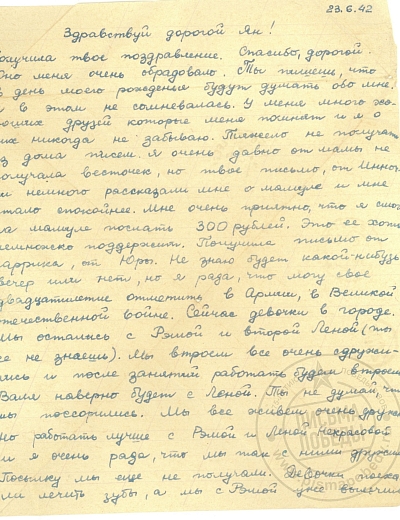 23.6.42
Здравствуй дорогой Ян!
получила твое поздравление. Спасибо, дорогой.
Оно меня очень обрадовало. Ты пишешь, что
в день моего рожденья будут думать обо мне.
я в этом не сомневалась. У меня много хо-
роших друзей которые меня помнят и я о
них никогда не забываю. Тяжело не получать
из дома писем. я очень давно от мамы не
получала весточек, но твое письмо, от
и немного рассказали мне о мамуле и мне
стало спокойнее. Мне очень приятно, что я смог
ла мамуле послать 300 рублей. Это ее хоть
немножко поддержит. Получила письмо от
Гаррика, от Юры. Не знаю будет какой-нибудь
вечер или нет, но я рада, что могу свое
двадцатилетие отметить в Армии, в Великой
отечественной войне. Сейчас девочки в городе.
Мы остались с Рэмой и второй Леной (ты
ее не знаешь). Мы втроем все очень сдружи-
лись и после занятий работать будем втроем
Валя наверно будет с Лёной. Ты не думай, что
мы поссорились. Мы все живем очень дружно
Но работать лучше с Рэмой и Леной Некрасовой.
и я очень рада, что мы так с ними дружны
Посылку мы еще не получали. Девочки поеха
ли лечить зубы, а мы с Рэмой уже вылечили